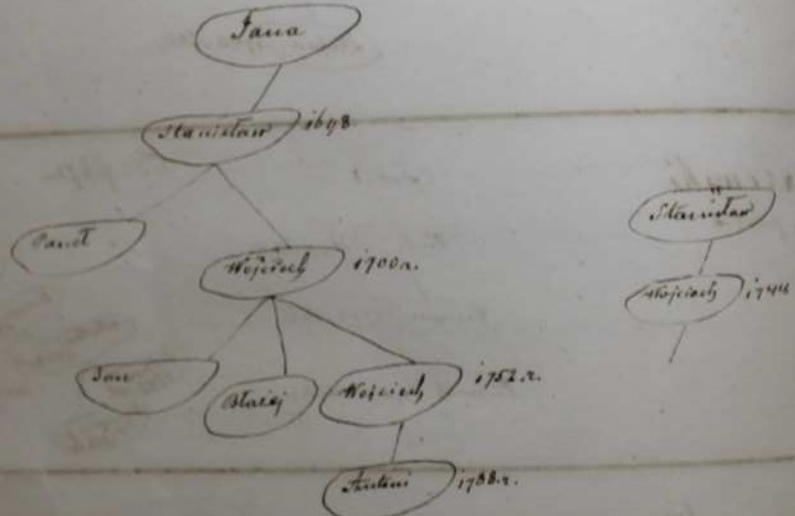 Jana
Stanisław 1698
Paweł
Wojciech 1700 r.
Jan
Błażej
Wojciech 1752. r.
Antoni 1788. r.
Stanisław
Wojciech 1744